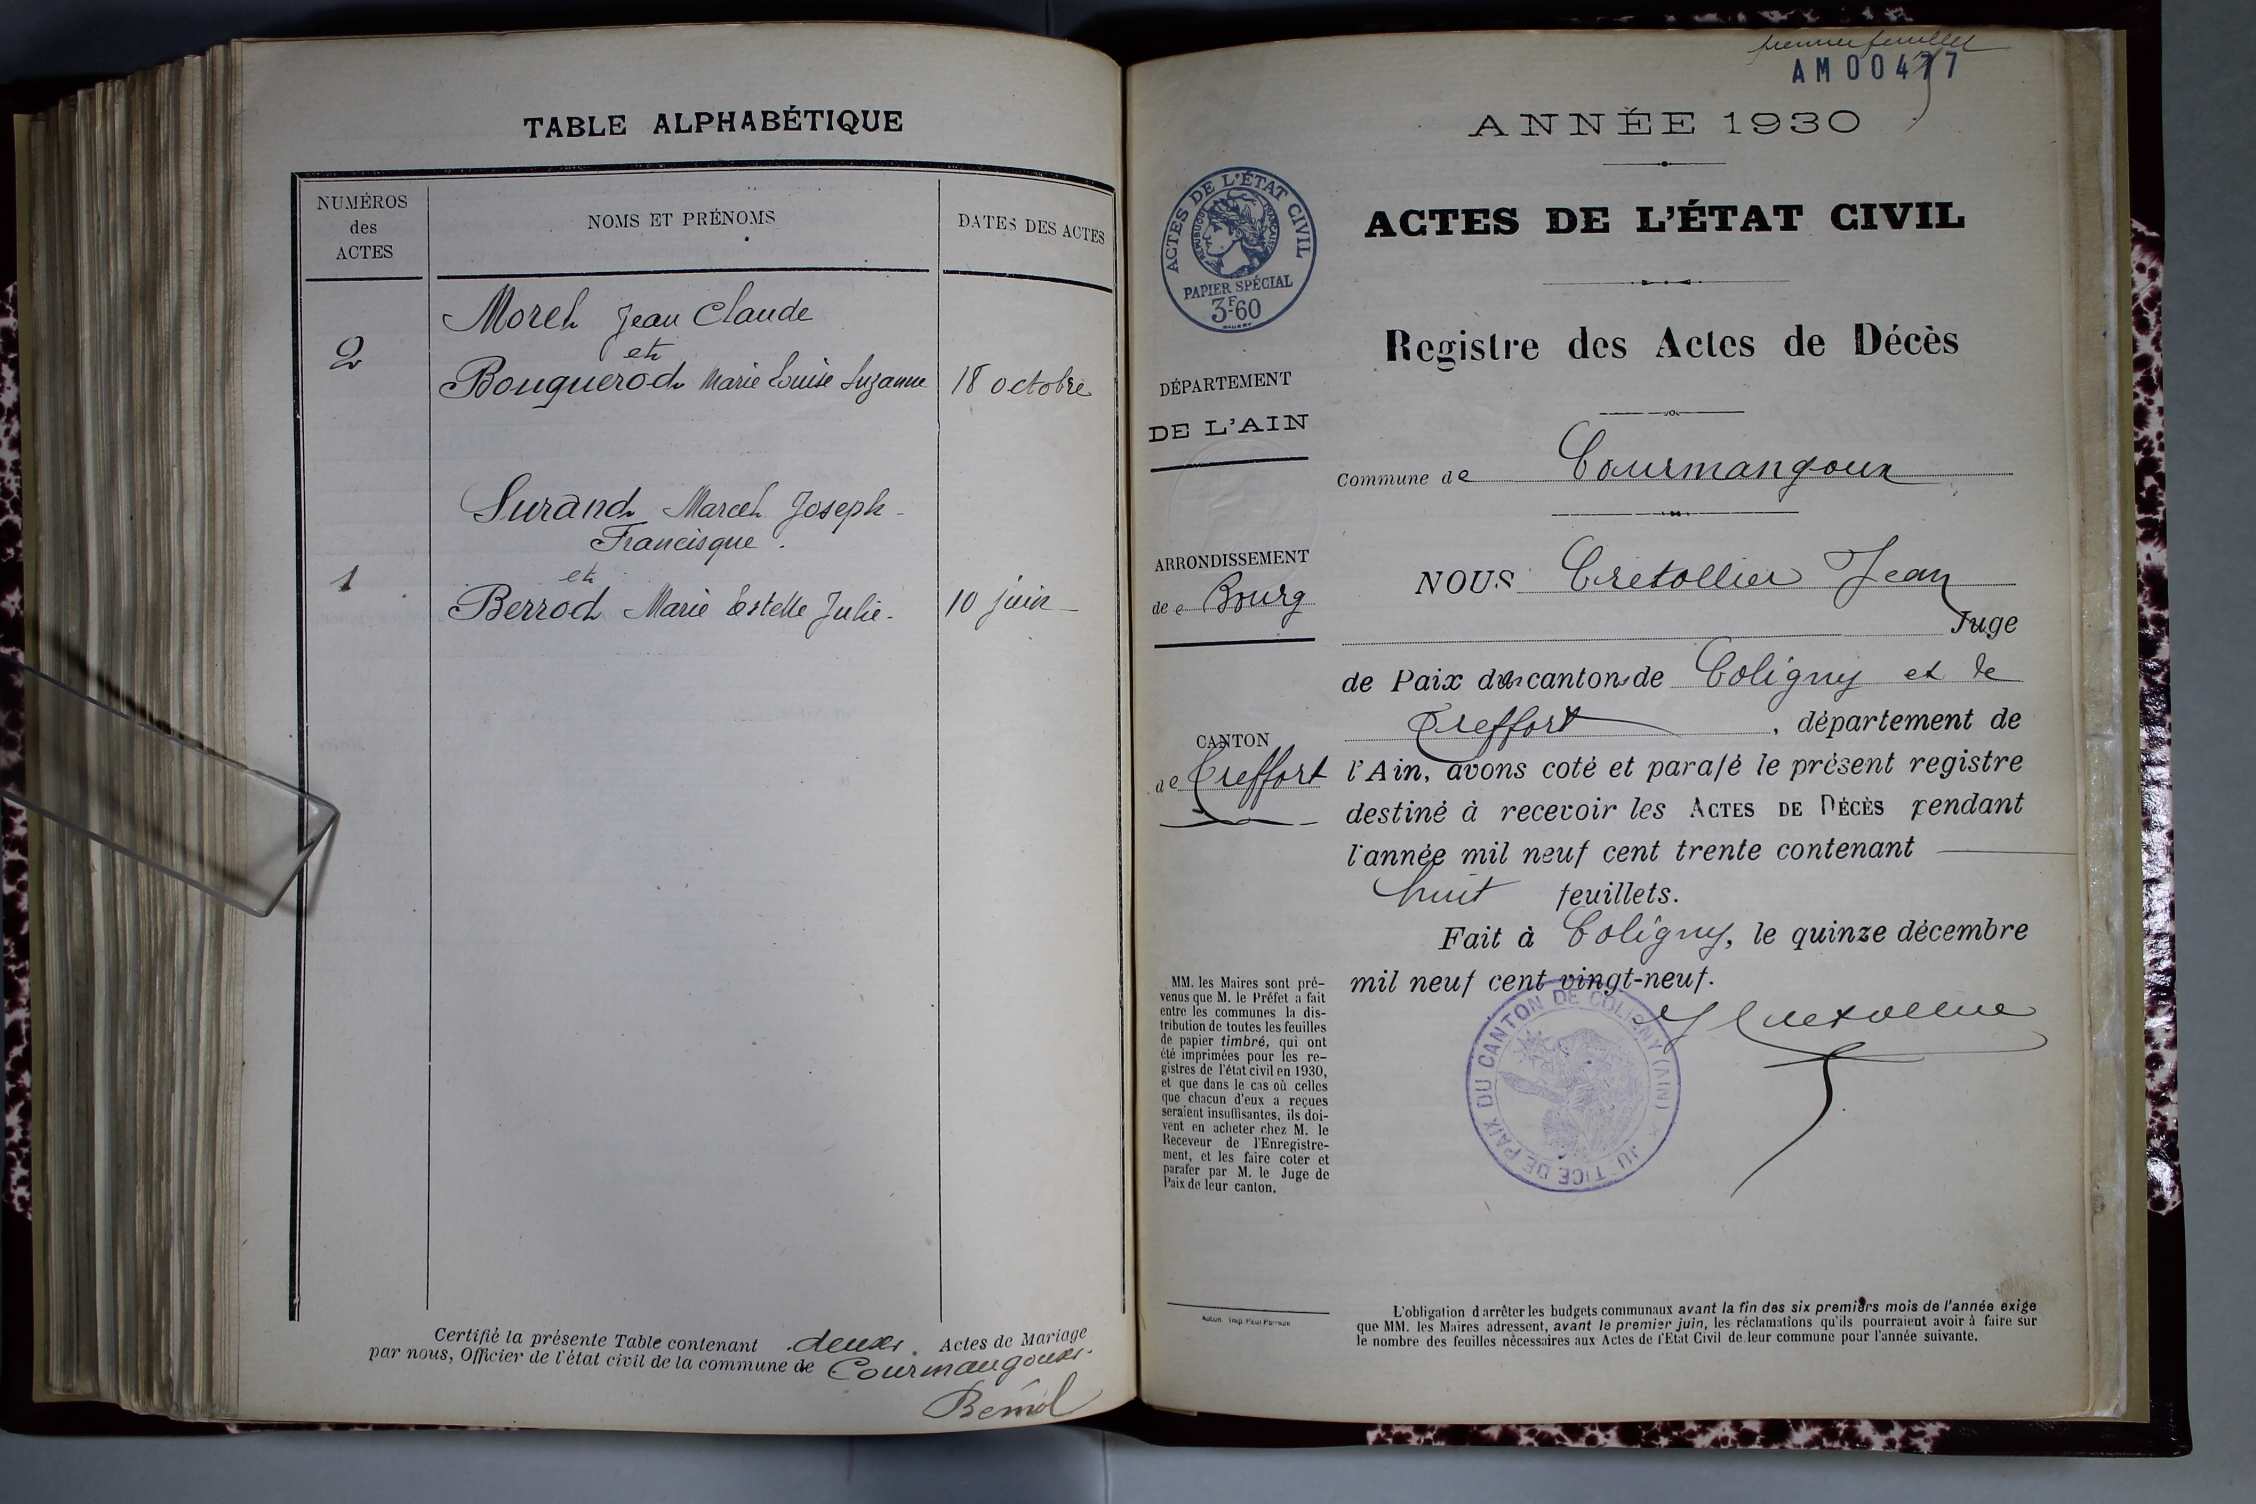 TABLE ALPHABÉTIQUE
NUMÉROS
des
ACTES
NOMS ET PRÉNOMS
DATES DES ACTES
Morel Jean Claude
2
et
Bouquerod Marie Louise Suzanne
18 octobre
Surand Marcel Joseph
Francisque.
1
et
Berrod Marie Estelle Julie
10 juin
Certifié la présente Table contenant deux Actes de Mariage
par nous, Officier de l'état civil de la commune de Courmangoux.
premier feuillet
AM00477
ANNÉE 1930
ACTES DE L'ÉTAT CIVIL
RÉPUBLIQUE FRANÇAISE
PAPIER SPÉCIAL
3F60
ACTES DE L'ÉTAT CIVIL
Registre des Actes de Décès
DÉPARTEMENT
DE L'AIN
Commune de Courmangoux
ARRONDISSEMENT
de Bourg
NOUS Cretollier Jean
Juge
de Paix des cantons de Coligny et de
Treffort, département de
CANTON
de Treffort
l'Ain, avons coté et parafé le présent registre
destiné à recevoir les ACTES DE DÉCÈS pendant
l'année mil neuf cent trente contenant
huit feuillets.
Fait à Coligny, le quinze décembre
mil neuf cent vingt-neuf.
JUSTICE DE PAIX DU CANTON DE COLIGNY (AIN)
MM. les Maires sont pré-
venus que M. le Préfet a fait
entre les communes la dis-
tribution de toutes les feuilles
de papier timbré, qui ont
été imprimées pour les re-
gistres de l'état civil en 1930,
et que dans le cas où celles
que chacun d'eux a reçues
seraient insuffisantes, ils doi-
vent en acheter chez M. le
Receveur de l'Enregistre-
ment, et les faire coter et
parafer par M. le Juge de
Paix de leur canton.
L'obligation d'arrêter les budgets communaux avant la fin des six premiers mois de l'année exige
que MM. les Maires adressent, avant le premier juin, les réclamations qu'ils pourraient avoir à faire sur
le nombre des feuilles nécessaires aux Actes de l'Etat Civil de leur commune pour l'année suivante.